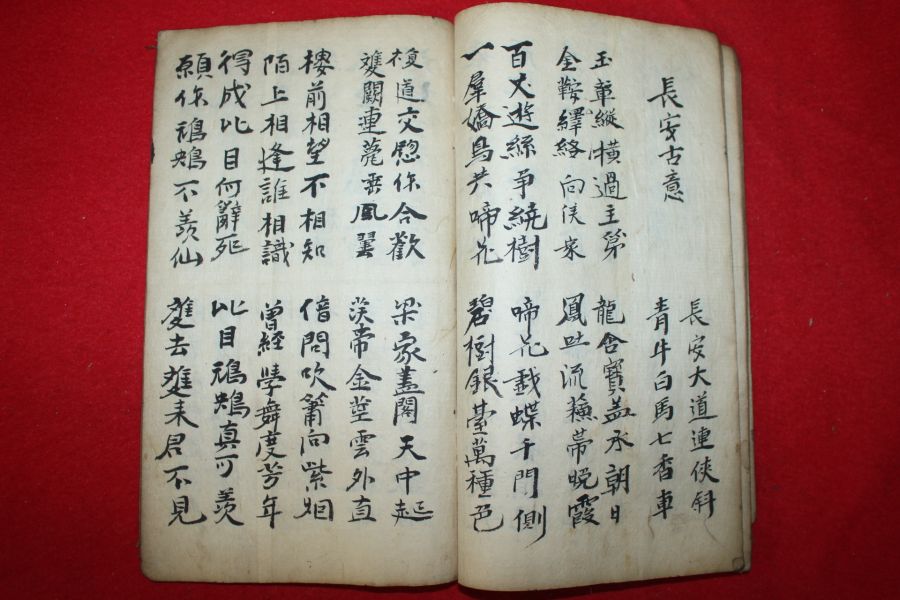 長安古意
長安大道連俠斜
青牛白馬七香車
玉輦縱橫過主第
金鞍繹絡向侯家
龍含寶盖承朝日
鳳吐流蘓帶晚霞
百丈遊絲爭繞樹
一羣嬌鳥共啼花
啼花戱蝶千門側
碧樹銀臺萬種色
複道交窓作合歡
雙闕連甍垂風翼
梁家盖閣天中起
漢帝金莖雲外直
樓前相望不相知
陌上相逢誰相識
借問吹簫向紫烟
曾経學舞度芳年
得成比目何辭死
願作鴛鴦不羨仙
比目鴛鴦真可羨
雙去雙来君不見